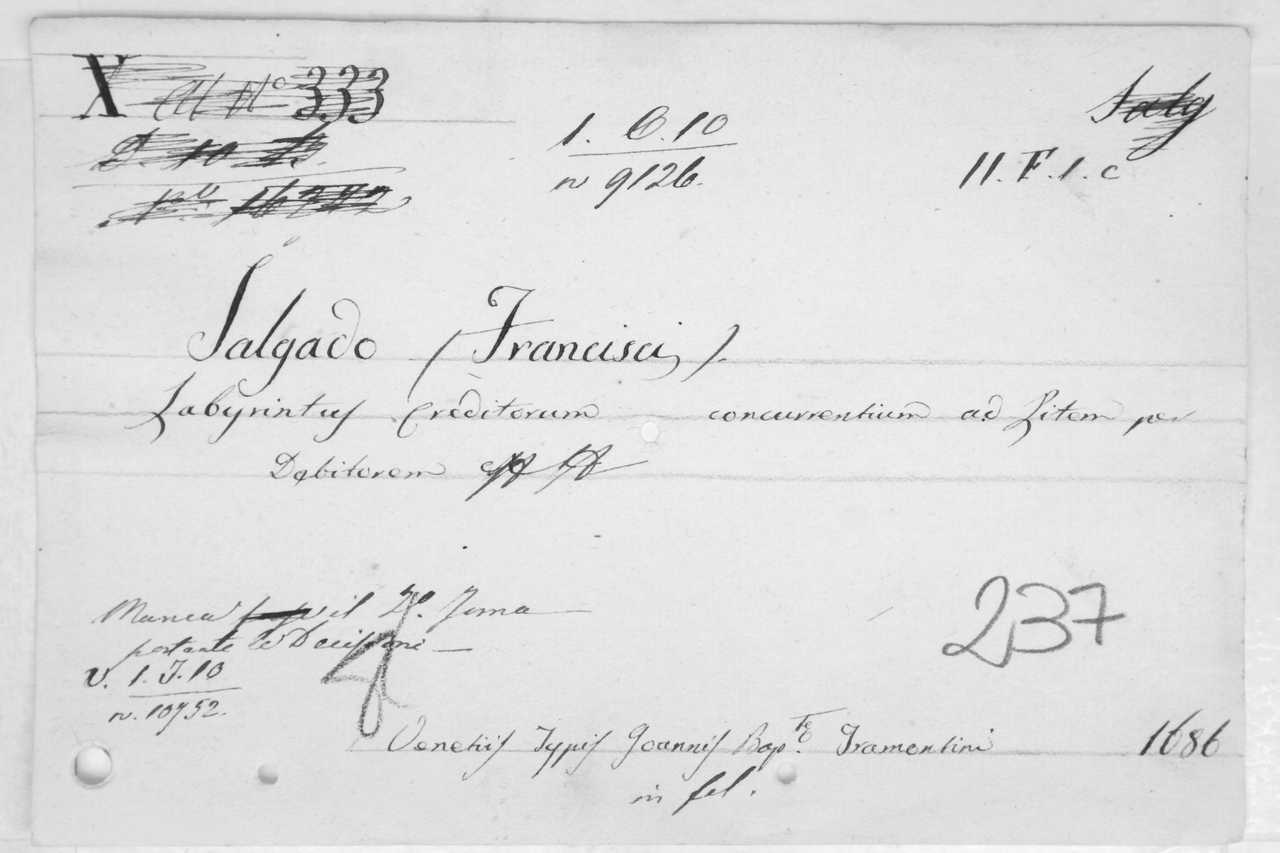 X All N.o 333
D. 10
1. C. 10
n 9126.
Salg
11. F. 1. c
Salgado (Francisci).
Labyrintus Creditorum concurrentium ad Litem per
Debitorem
Manca il 2.o Tomo
portante le Decisioni
V. 1. J. 10
n. 10952.
237
Venetiis Typis Joannis Bap.te Tramentini 1686
in fol.